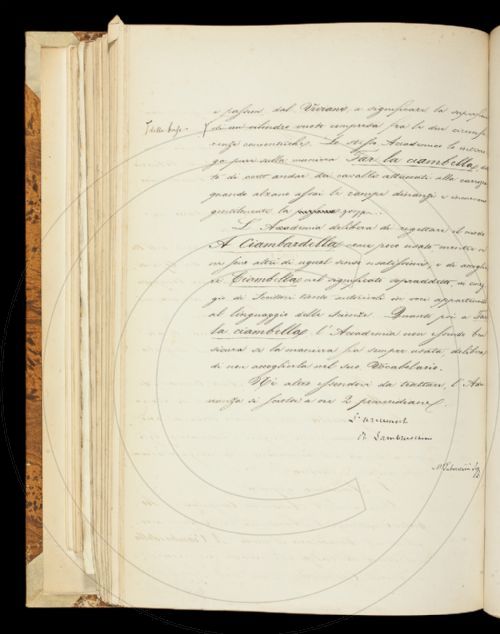 e passim dal Viviani, a significare la superficie
della base
di un cilindro vuoto compresa fra le due circonfe-
renze concentriche. Lo stesso Accademico la
pur sulla maniera Far la ciambella, det-
to di cert' andar dei cavalli attaccati alla
quando alzano assai le zampe dinanzi e
gentilmente la zampa.
L'Accademia delibera di rigettare il modo
A Ciambardella come poco usato mentre
altri di ugual senso usatissimi, e di accoglie-
re Ciambella nel significato sopraddetto,
gio di Scrittori tanto autorevoli in voci appartenenti
al linguaggio delle Scienze. Quanto poi a Far
la ciambella, l'Accademia non essendo ben
sicura se la maniera sia sempre usata, delibera
di non accoglierla nel suo Vocabolario.
Nè altro essendovi da trattare, l'Adu-
nanza si sciolse a ore 2 pomeridiane.
R. Lambruschini